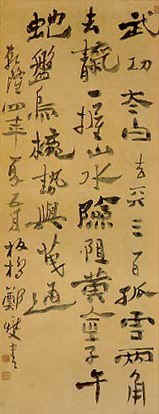 武功太白去天三百孤雲兩角
去天一握山水險阻黃金子午
蛇盤烏櫳勢與天通
乾隆四年夏五月板橋鄭燮書